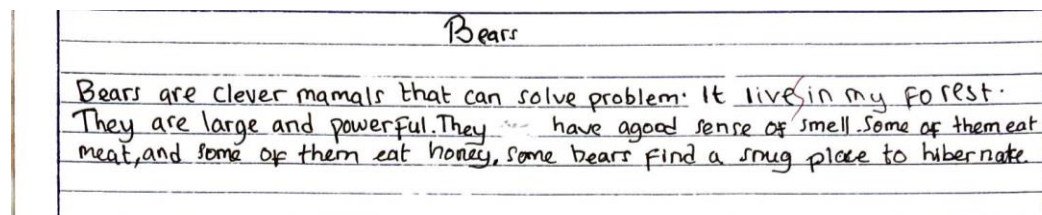 Bears
Bears are clever mamals that can solve problem. It live in my forest.
They are large and powerful. They have agood sense of smell. Some of them eat
meat, and some of them eat honey. Some bears find a snug place to hibernate